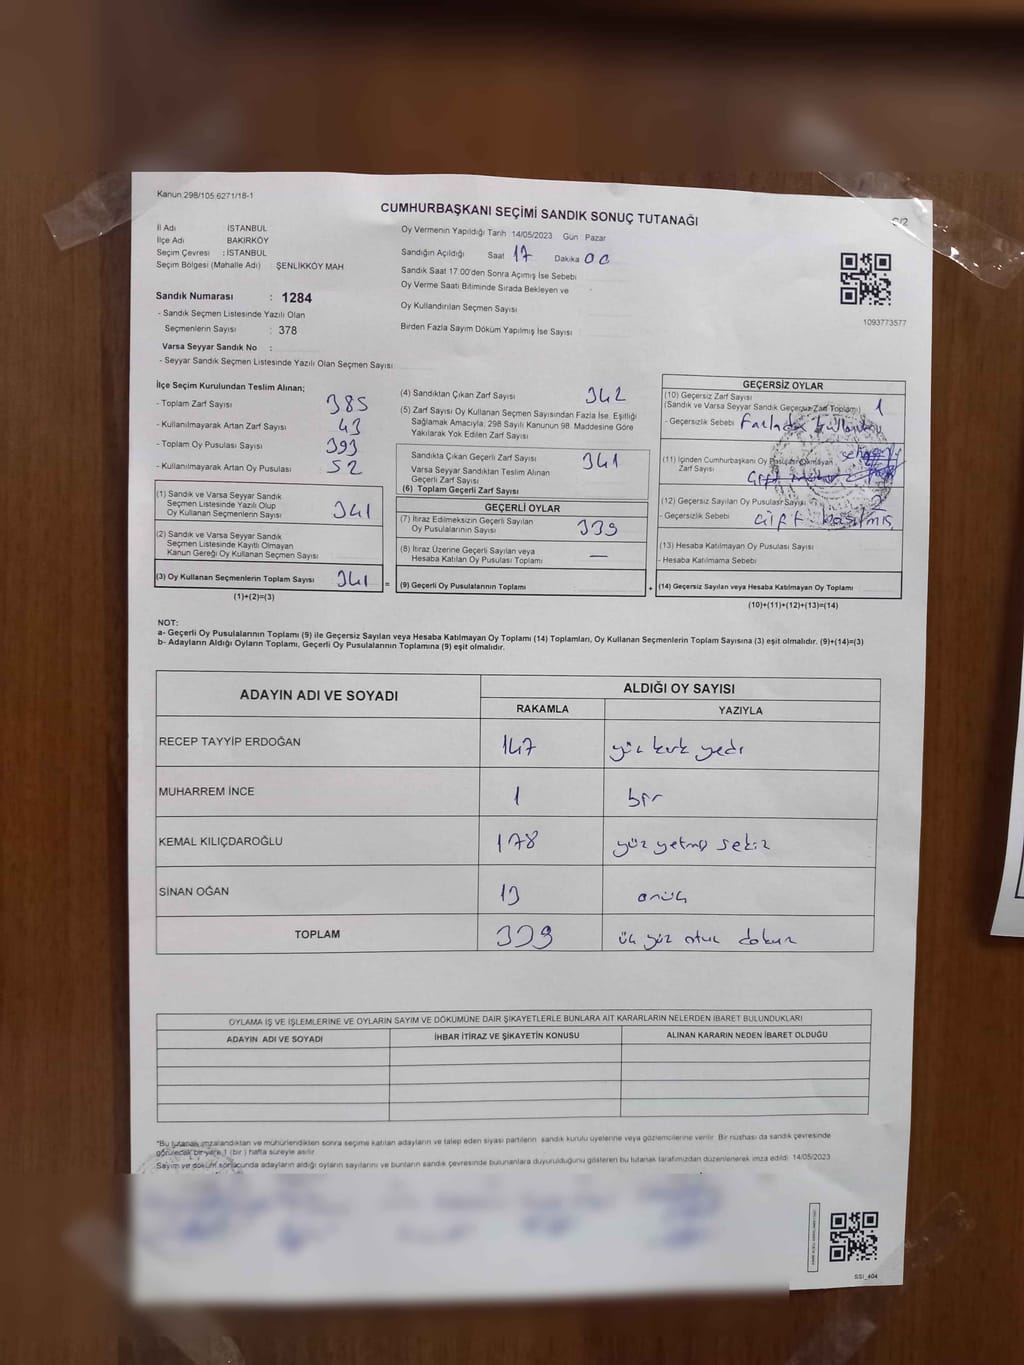 Kanun:298/105,6271/18-1
CUMHURBAŞKANI SEÇİMİ SANDIK SONUÇ TUTANAĞI
C/2
İl Adı İSTANBUL
İlçe Adı BAKIRKÖY
Seçim Çevresi : İSTANBUL
Seçim Bölgesi (Mahalle Adı) : ŞENLİKKÖY MAH
Sandık Numarası : 1284
- Sandık Seçmen Listesinde Yazılı Olan
Seçmenlerin Sayısı : 378
Varsa Seyyar Sandık No :
- Seyyar Sandık Seçmen Listesinde Yazılı Olan Seçmen Sayısı
Oy Vermenin Yapıldığı Tarih : 14/05/2023 Gün : Pazar
Sandığın Açıldığı Saat 17 Dakika 00
Sandık Saat 17:00'den Sonra Açımış İse Sebebi
Oy Verme Saati Bitiminde Sırada Bekleyen ve
Oy Kullandırılan Seçmen Sayısı
Birden Fazla Sayım Döküm Yapılmış İse Sayısı
1093773577
İlçe Seçim Kurulundan Teslim Alınan;
- Toplam Zarf Sayısı 385
- Kullanılmayarak Artan Zarf Sayısı 43
- Toplam Oy Pusulası Sayısı 393
- Kullanılmayarak Artan Oy Pusulası 52
(1) Sandık ve Varsa Seyyar Sandık
Seçmen Listesinde Yazılı Olup
Oy Kullanan Seçmenlerin Sayısı 341
(2) Sandık ve Varsa Seyyar Sandık
Seçmen Listesinde Kayıtlı Olmayan
Kanun Gereği Oy Kullanan Seçmen Sayısı
(3) Oy Kullanan Seçmenlerin Toplam Sayısı 341 =
(1)+(2)=(3)
(4) Sandıktan Çıkan Zarf Sayısı 342
(5) Zarf Sayısı Oy Kullanan Seçmen Sayısından Fazla İse, Eşitliği
Sağlamak Amacıyla; 298 Sayılı Kanunun 98. Maddesine Göre
Yakılarak Yok Edilen Zarf Sayısı
Sandıkta Çıkan Geçerli Zarf Sayısı 341
Varsa Seyyar Sandıktan Teslim Alınan
Geçerli Zarf Sayısı
(6) Toplam Geçerli Zarf Sayısı
GEÇERLİ OYLAR
(7) İtiraz Edilmeksizin Geçerli Sayılan
Oy Pusulalarının Sayısı 339
(8) İtiraz Üzerine Geçerli Sayılan veya
Hesaba Katılan Oy Pusulası Toplamı —
(9) Geçerli Oy Pusulalarının Toplamı +
GEÇERSİZ OYLAR
(10) Geçersiz Zarf Sayısı
(Sandık ve Varsa Seyyar Sandık Geçersiz Zarf Toplamı) 1
- Geçersizlik Sebebi Fazladan
(11) İçinden Cumhurbaşkanı Oy Pusulası Çıkmayan
Zarf Sayısı
(12) Geçersiz Sayılan Oy Pusulası Sayısı 2
- Geçersizlik Sebebi çift basılmış
(13) Hesaba Katılmayan Oy Pusulası Sayısı
- Hesaba Katılmama Sebebi
(14) Geçersiz Sayılan veya Hesaba Katılmayan Oy Toplamı
(10)+(11)+(12)+(13)=(14)
NOT:
a- Geçerli Oy Pusulalarının Toplamı (9) ile Geçersiz Sayılan veya Hesaba Katılmayan Oy Toplamı (14) Toplamları, Oy Kullanan Seçmenlerin Toplam Sayısına (3) eşit olmalıdır. (9)+(14)=(3)
b- Adayların Aldığı Oyların Toplamı, Geçerli Oy Pusulalarının Toplamına (9) eşit olmalıdır.
ADAYIN ADI VE SOYADI ALDIĞI OY SAYISI
RAKAMLA YAZIYLA
RECEP TAYYİP ERDOĞAN 147 yüz kırk yedi
MUHARREM İNCE 1 bir
KEMAL KILIÇDAROĞLU 178 yüz yetmiş sekiz
SİNAN OĞAN 13 onüç
TOPLAM 339 üç yüz otuz dokuz
OYLAMA İŞ VE İŞLEMLERİNE VE OYLARIN SAYIM VE DÖKÜMÜNE DAİR ŞİKAYETLERLE BUNLARA AİT KARARLARIN NELERDEN İBARET BULUNDUKLARI
ADAYIN ADI VE SOYADI İHBAR İTİRAZ VE ŞİKAYETİN KONUSU ALINAN KARARIN NEDEN İBARET OLDUĞU
*Bu tutanak imzalandıktan ve mühürlendikten sonra seçime katılan adayların ve talep eden siyasi partilerin sandık kurulu üyelerine veya gözlemcilerine verilir. Bir nüshası da sandık çevresinde
görülecek bir yere 1 (bir) hafta süreyle asılır.
Sayım ve döküm sonucunda adayların aldığı oyların sayılarını ve bunların sandık çevresinde bulunanlara duyurulduğunu gösteren bu tutanak tarafımızdan düzenlenerek imza edildi. 14/05/2023
SSI_404